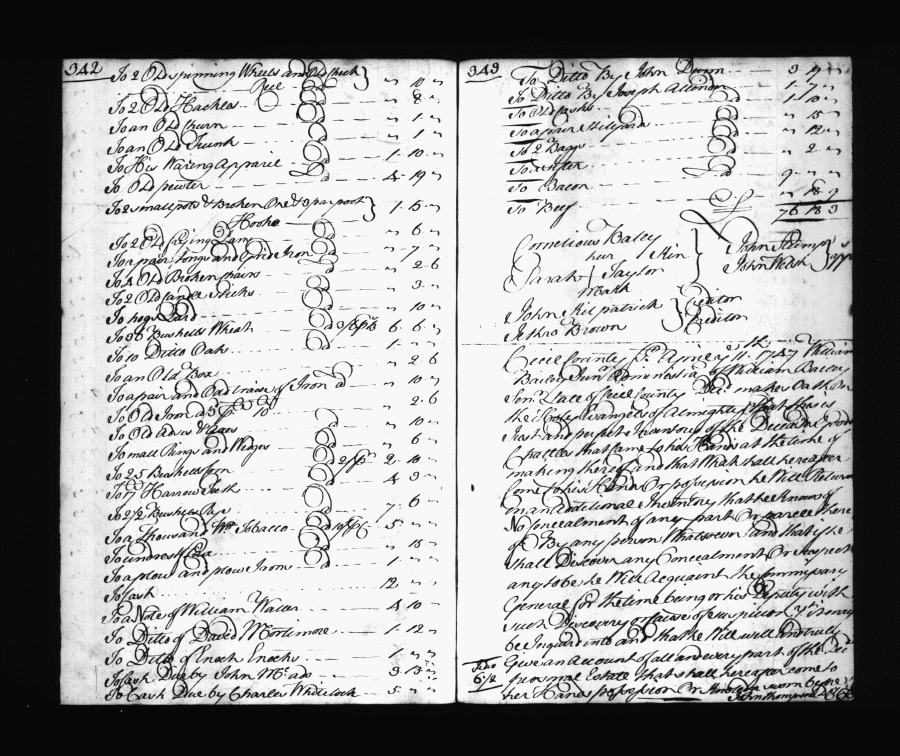 342
To 2 Old spinning Wheels and Old Check
Reel } " 10 "
To 2 Old Hackles " 8 "
To an Old Churn " 1 "
To an Old Trunk " 1 "
To His Waring Apparil 1 10 "
To Old pewter 4 19 "
To 2 small pots & Broken One & 3 par pot
Hooks } 1 15 "
To 2 Old frying Pans " 6 "
To a pair tongs and Gride Iron " 7 "
To 4 Old Broken Chairs " 2 6
To 2 Old Candle Sticks " 3 "
To hogs Lard " 10 "
To 36 Bushells Wheat 6 6 "
To 10 Ditto Oats 1 " "
To an Old Box " 2 6
To a pair and Old traise of Iron " 10 "
To Old Iron " 2 6
To Old Wedges " 10 "
To small Rings and Wedges " 6 "
To 25 Bushells Corn 2 10 "
To 17 Harrow Teeth 4 3 "
To 2 1/2 Bushells Rye 7 6
To a Thousand Wt Tobacco 5 " "
To undrest Flax " 15 "
To a plow and plow Irons 1 " "
To Cash 12 " "
To a Note of William Waller 4 10 "
To Ditto of David Mortimore 1 12 "
To Ditto of Enoch Enochs 1 " "
To Cash Due by John McAdo 3 13 "
To Cash Due by Charles Whitelock 5 " "
343
To Ditto By John Dunn 3 19 "
To Ditto By Joseph 1 7 "
To Old Casks 1 10 "
To a pair Stilyards " 15 "
To 2 Baggs " 12 "
To a " 2 "
To Bacon 9 " "
To Beef " 18 9
76 18 3
Cornelious Baley
her Kin
Sarah Taylor
Mark
John Kilpatrick Creditor
Jethro Brown Creditor
John
John Welsh
Cecil County Ss. 11th 1747 William
Bailey Junr Administrator of William Bailey
Senr Late of Cecil County Decd makes Oath on
the Holy Evangels of Almighty that this is
Just and perfect Inventory of the Deceased Goods
Chattles that Came to his Hands at the time of
making thereof and that What shall hereafter
Come to his Hands Or possession he Will Return
in an additional Inventory that he Knows of
No Concealment of any part Or parcel there
of By any person Whatsoever and that if he
shall Discover any Concealment Or suspect
any to be he Will Acquaint the Commissary
General for the time being or his Deputy with
such Discovery or Cause of suspicion that it may
be Inquired into and that he Will well and truly
Give an Account of all and every part of the Decd
personal Estate that shall hereafter come to
her Hands possession Or Knowledge sworn before
John Thompson